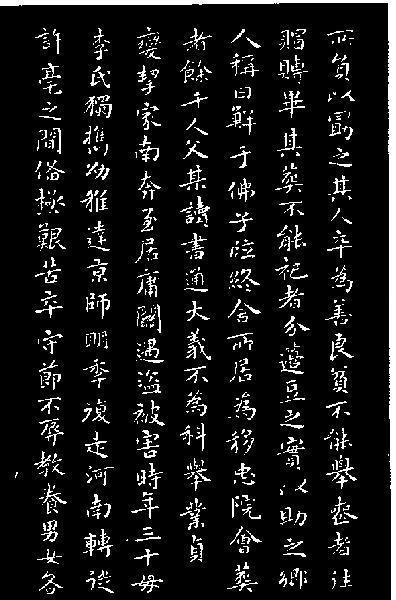 所負以匄之其人卒為善良貧不能舉喪者往
賵賻畢其葬不能祀者分籩豆之實以助之鄉
人稱曰鮮于佛子臨終舍所居為移忠院會葬
者餘千人父某讀書通大義不為科舉業貞
變挈家南奔至居庸關遇盜被害時年三十母
李氏獨攜幼稚達京師明年復走河南轉徙
許亳之間備極艱苦卒守節不辱教養男女各